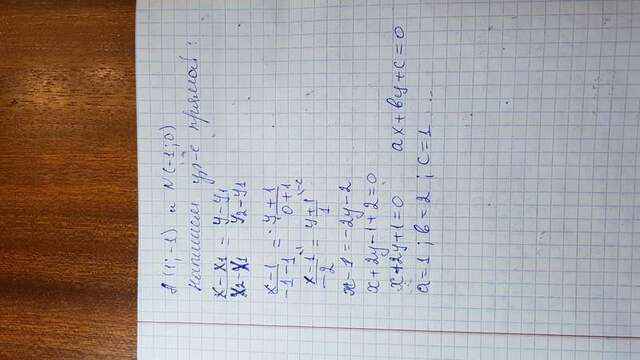 A(1;-1) и N(-1;0)
Напишем ур-е прямой:
x-x₁/x₂-x₁ = y-y₁/y₂-y₁
x-1/-1-1 = y+1/0+1
x-1/-2 = y+1/1
x-1=-2y-2
x+2y-1+2=0
x+2y+1=0 ax+by+c=0
a=1; b=2; c=1